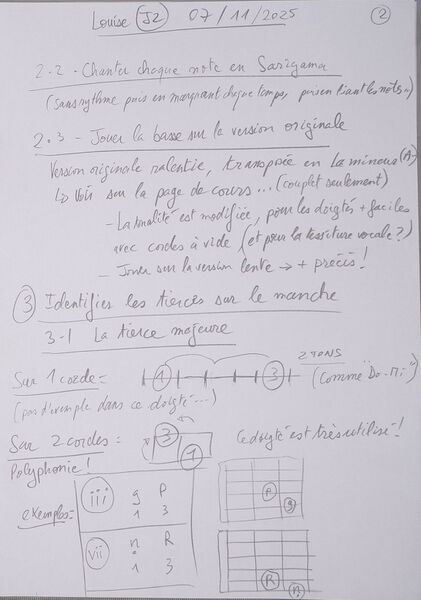 Louise (J2) 07/11/2025 (2)
2.2 - Chanter chaque note en Sarigama
(sans rythme puis en marquant chaque temps, puis en liant les notes)
2.3 - Jouer la basse sur la version originale
Version originale ralentie, transposée en La mineur (A-)
↳ Voir sur la page de cours ... (couplet seulement)
- La tonalité est modifiée, pour les doigtés + faciles
avec cordes à vide (et pour la tessiture vocale ?)
- Jouer sur la version lente → + précis !
(3) Identifier les tierces sur le manche
3-1 La tierce majeure
Sur 1 corde = 1 3 2 TONS
(pas d'exemple dans ce doigté ...) (Comme "Do-Mi")
Sur 2 cordes = 3 1 Ce doigté est très utilisé !
Polyphonie !
exemples =
iii g P
1 3
P g
vii n R
1 3
R n